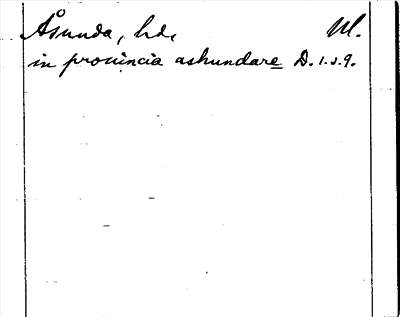 Åsunda, hd, Ul.
in prouincia ashundare D. 1. s. 9.